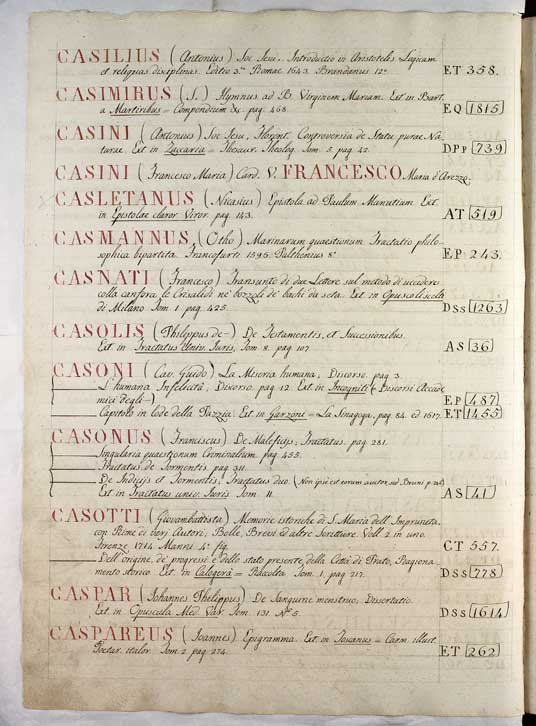 CASILIUS (Antonius) Soc. Jesu. Introductio in Aristotelis Logicam
et reliquas disciplinas. Editio 3.ª Romae 1643. Brandanus 12.º ET 358.
CASIMIRUS (S.) Hymnus ad B. Virginem Mariam. Ext. in Bart.
a Martiribus = Compendium &c. pag. 468. EQ 1815
CASINI (Antonius) Soc. Jesu, Florent. Controversia de Statu purae Na-
turae. Ext. in Zaccaria = Thesaur. Theolog. Tom. 5. pag. 42. DPP 739
CASINI (Francesco Maria) Card. V. FRANCESCO Maria d'Arezzo.
CASLETANUS (Nicasius) Epistola ad Paulum Manutium. Ext.
in Epistolae claror. Viror. pag. 143. AT 519
CASMANNUS (Otho) Marinarum quaestionum Tractatio philo-
sophica bipartita. Francofurti 1596. Palthenius 8.º EP 243.
CASNATI (Francesco) Transunto di due Lettere sul metodo di uccidere
colla canfora le Crisalidi ne' bozzoli de' bachi da seta. Ext. in Opuscoli scelti
di Milano Tom. 1. pag. 425. DSS 1263
CASOLIS (Philippus de-) De Testamentis, et Successionibus.
Ext. in Tractatus Univ. Juris, Tom. 8. pag. 107. AS 36
CASONI (Cav. Guido) La Miseria humana; Discorso. pag. 3.
L'humana Infelicità; Discorso. pag. 12. Ext. in Incogniti (Discorsi Accade-
mici degli-) EP 487
Capitolo in lode della Pazzia. Ext. in Garzoni = La Sinagoga, pag. 84. ed. 1617. ET 1455
CASONUS (Franciscus) De Maleficijs, Tractatus. pag. 281.
Singularia quaestionum Criminalium. pag. 455.
Tractatus de Tormentis. pag. 311.
De Indicijs et Tormentis, Tractatus duo. (Non ipse est eorum auctor, sed Bruni p. 246)
Ext. in Tractatus univ. Juris Tom. 11. AS 41
CASOTTI (Giovambattista) Memorie istoriche di S. Maria dell'Impruneta,
con Rime di varj Autori, Bolle, Brevi ed altre Scritture. Voll. 2 in uno.
Firenze 1714. Manni. 4.º fig. CT 557.
Dell'origine, de' progressi e dello stato presente della Città di Prato, Ragiona-
mento storico. Ext. in Calogerà = Raccolta Tom. 1. pag. 217. DSS 778
CASPAR (Johannes Philippus) De Sanguine menstruo; Dissertatio.
Ext. in Opuscula Med. Var. Tom. 131. N.º 5. DSS 1614
CASPAREUS (Joannes) Epigramma. Ext. in Toxanus = Carm. illust.
Poetar. italor. Tom. 2. pag. 274. ET 262